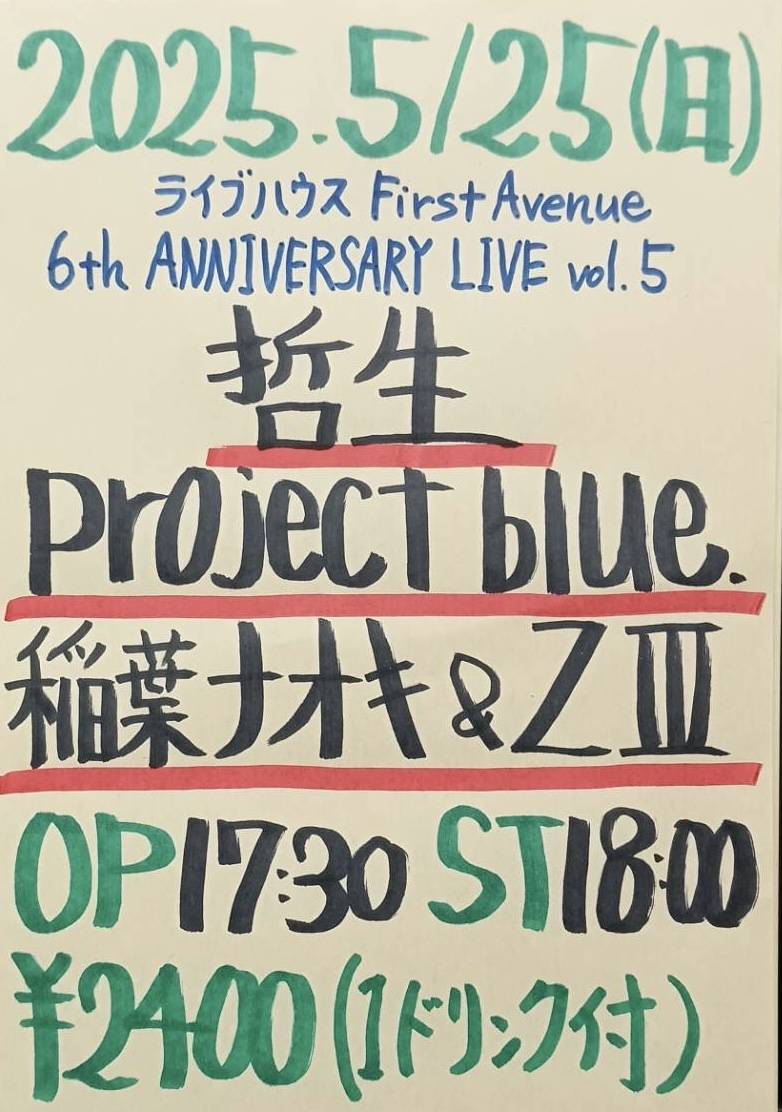 2025.5/25(日)
ライブハウス First Avenue
6th ANNIVERSARY LIVE vol.5
哲生
project blue.
稲葉ナオキ&ZⅢ
OP17:30 ST18:00
¥2400(1ドリンク付)